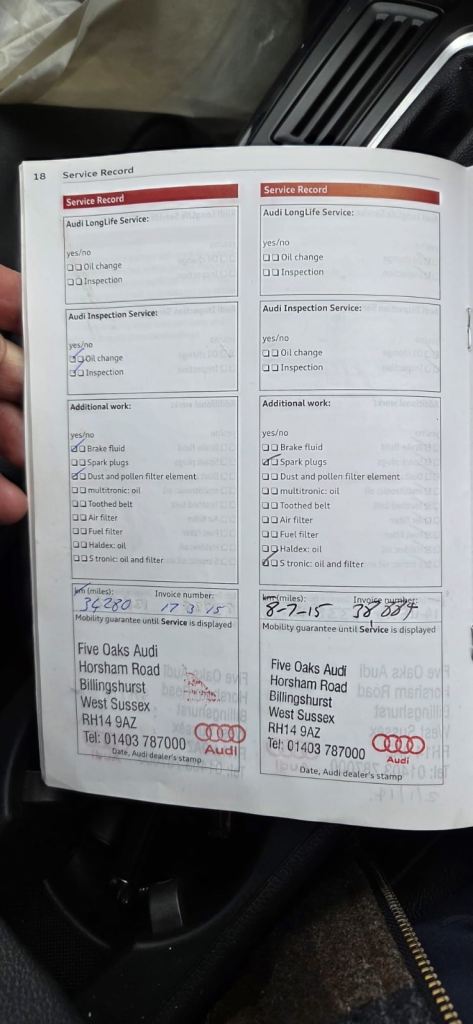 18 Service Record
Service Record
Audi LongLife Service:
yes/no
Oil change
Inspection
Audi Inspection Service:
yes/no
Oil change
Inspection
Additional work:
yes/no
Brake fluid
Spark plugs
Dust and pollen filter element
multitronic: oil
Toothed belt
Air filter
Fuel filter
Haldex: oil
S tronic: oil and filter
km (miles): Invoice number:
34280 17 3 15
Mobility guarantee until Service is displayed
Five Oaks Audi
Horsham Road
Billingshurst
West Sussex
RH14 9AZ
Tel: 01403 787000
Audi
Date, Audi dealer's stamp
Service Record
Audi LongLife Service:
yes/no
Oil change
Inspection
Audi Inspection Service:
yes/no
Oil change
Inspection
Additional work:
yes/no
Brake fluid
Spark plugs
Dust and pollen filter element
multitronic: oil
Toothed belt
Air filter
Fuel filter
Haldex: oil
S tronic: oil and filter
km (miles): Invoice number:
8-7-15
Mobility guarantee until Service is displayed
Five Oaks Audi
Horsham Road
Billingshurst
West Sussex
RH14 9AZ
Tel: 01403 787000
Audi
Date, Audi dealer's stamp